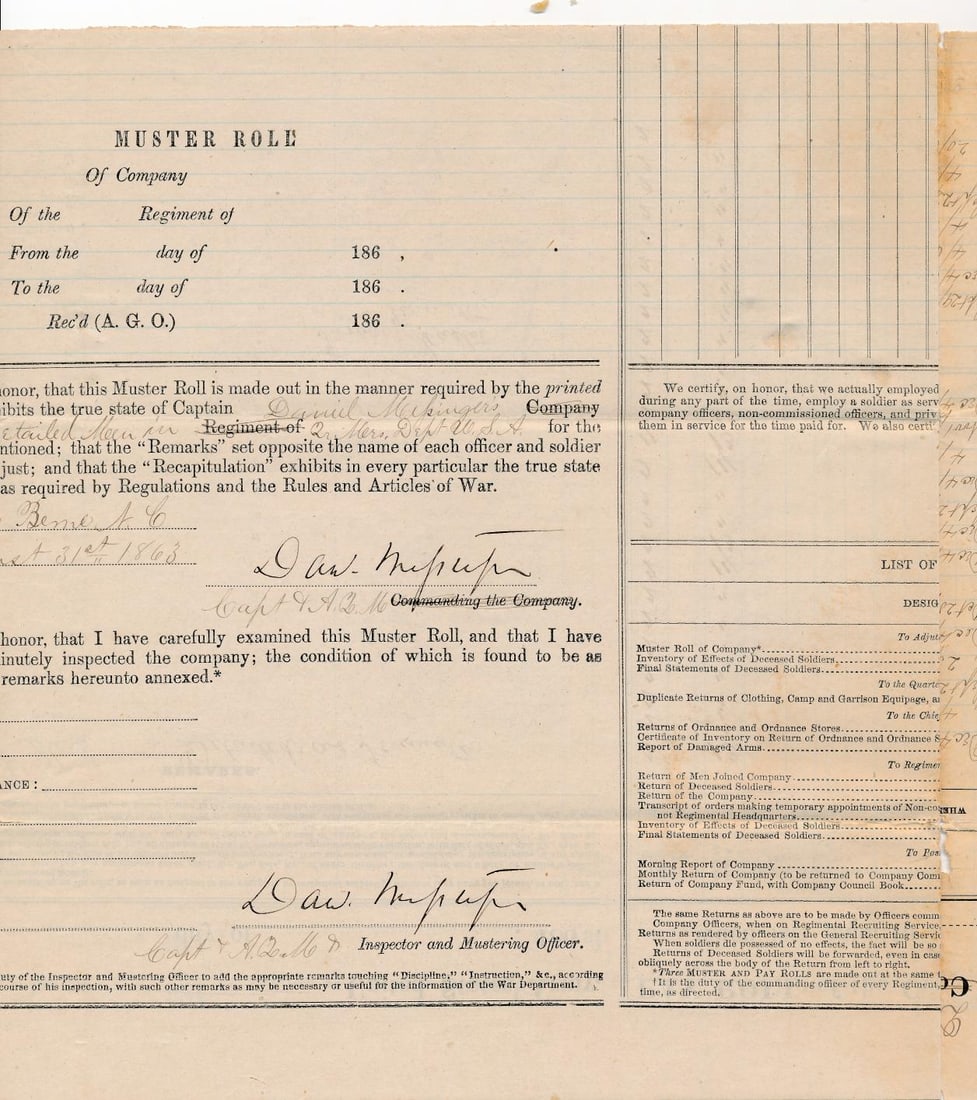 MUSTER ROLL
Of Company
Of the Regiment of
From the day of 186 ,
To the day of 186 .
Rec'd (A. G. O.) 186 .
onor, that this Muster Roll is made out in the manner required by the printed
ibits the true state of Captain Daniel Company
etailed Men in Regiment of Qr. Mrs. Dept U.S.A. for the
ntioned; that the "Remarks" set opposite the name of each officer and soldier
just; and that the "Recapitulation" exhibits in every particular the true state
as required by Regulations and the Rules and Articles of War.
Berne N. C
ust 31st 1863
Dan.
Capt & A.Q.M Commanding the Company.
honor, that I have carefully examined this Muster Roll, and that I have
inutely inspected the company; the condition of which is found to be as
remarks hereunto annexed.*
ANCE:
Dan.
Capt & A.Q.M & Inspector and Mustering Officer.
uty of the Inspector and Mustering Officer to add the appropriate remarks touching "Discipline," "Instruction," &c., according
course of his inspection, with such other remarks as may be necessary or useful for the information of the War Department.
We certify, on honor, that we actually employed
during any part of the time, employ a soldier as serv
company officers, non-commissioned officers, and priv
them in service for the time paid for. We also certi
LIST OF
DESIG
To Adjut
Muster Roll of Company*
Inventory of Effects of Deceased Soldiers
Final Statements of Deceased Soldiers
To the Quarte
Duplicate Returns of Clothing, Camp and Garrison Equipage, a
To the Chie
Returns of Ordnance and Ordnance Stores
Certificate of Inventory on Return of Ordnance and Ordnance S
Report of Damaged Arms
To Regime
Return of Men Joined Company
Return of Deceased Soldiers
Return of the Company
Transcript of orders making temporary appointments of Non-co
not Regimental Headquarters
Inventory of Effects of Deceased Soldiers
Final Statements of Deceased Soldiers
To Pos
Morning Report of Company
Monthly Return of Company (to be returned to Company Com
Return of Company Fund, with Company Council Book
The same Returns as above are to be made by Officers comm
Company Officers, when on Regimental Recruiting Service
Returns as rendered by officers on the General Recruiting Servi
When soldiers die possessed of no effects, the fact will be so
Returns of Deceased Soldiers will be forwarded, even in cas
obliquely across the body of the Return from left to right.
*Three MUSTER AND PAY ROLLS are made out at the same t
†It is the duty of the commanding officer of every Regiment,
time, as directed.
WHE